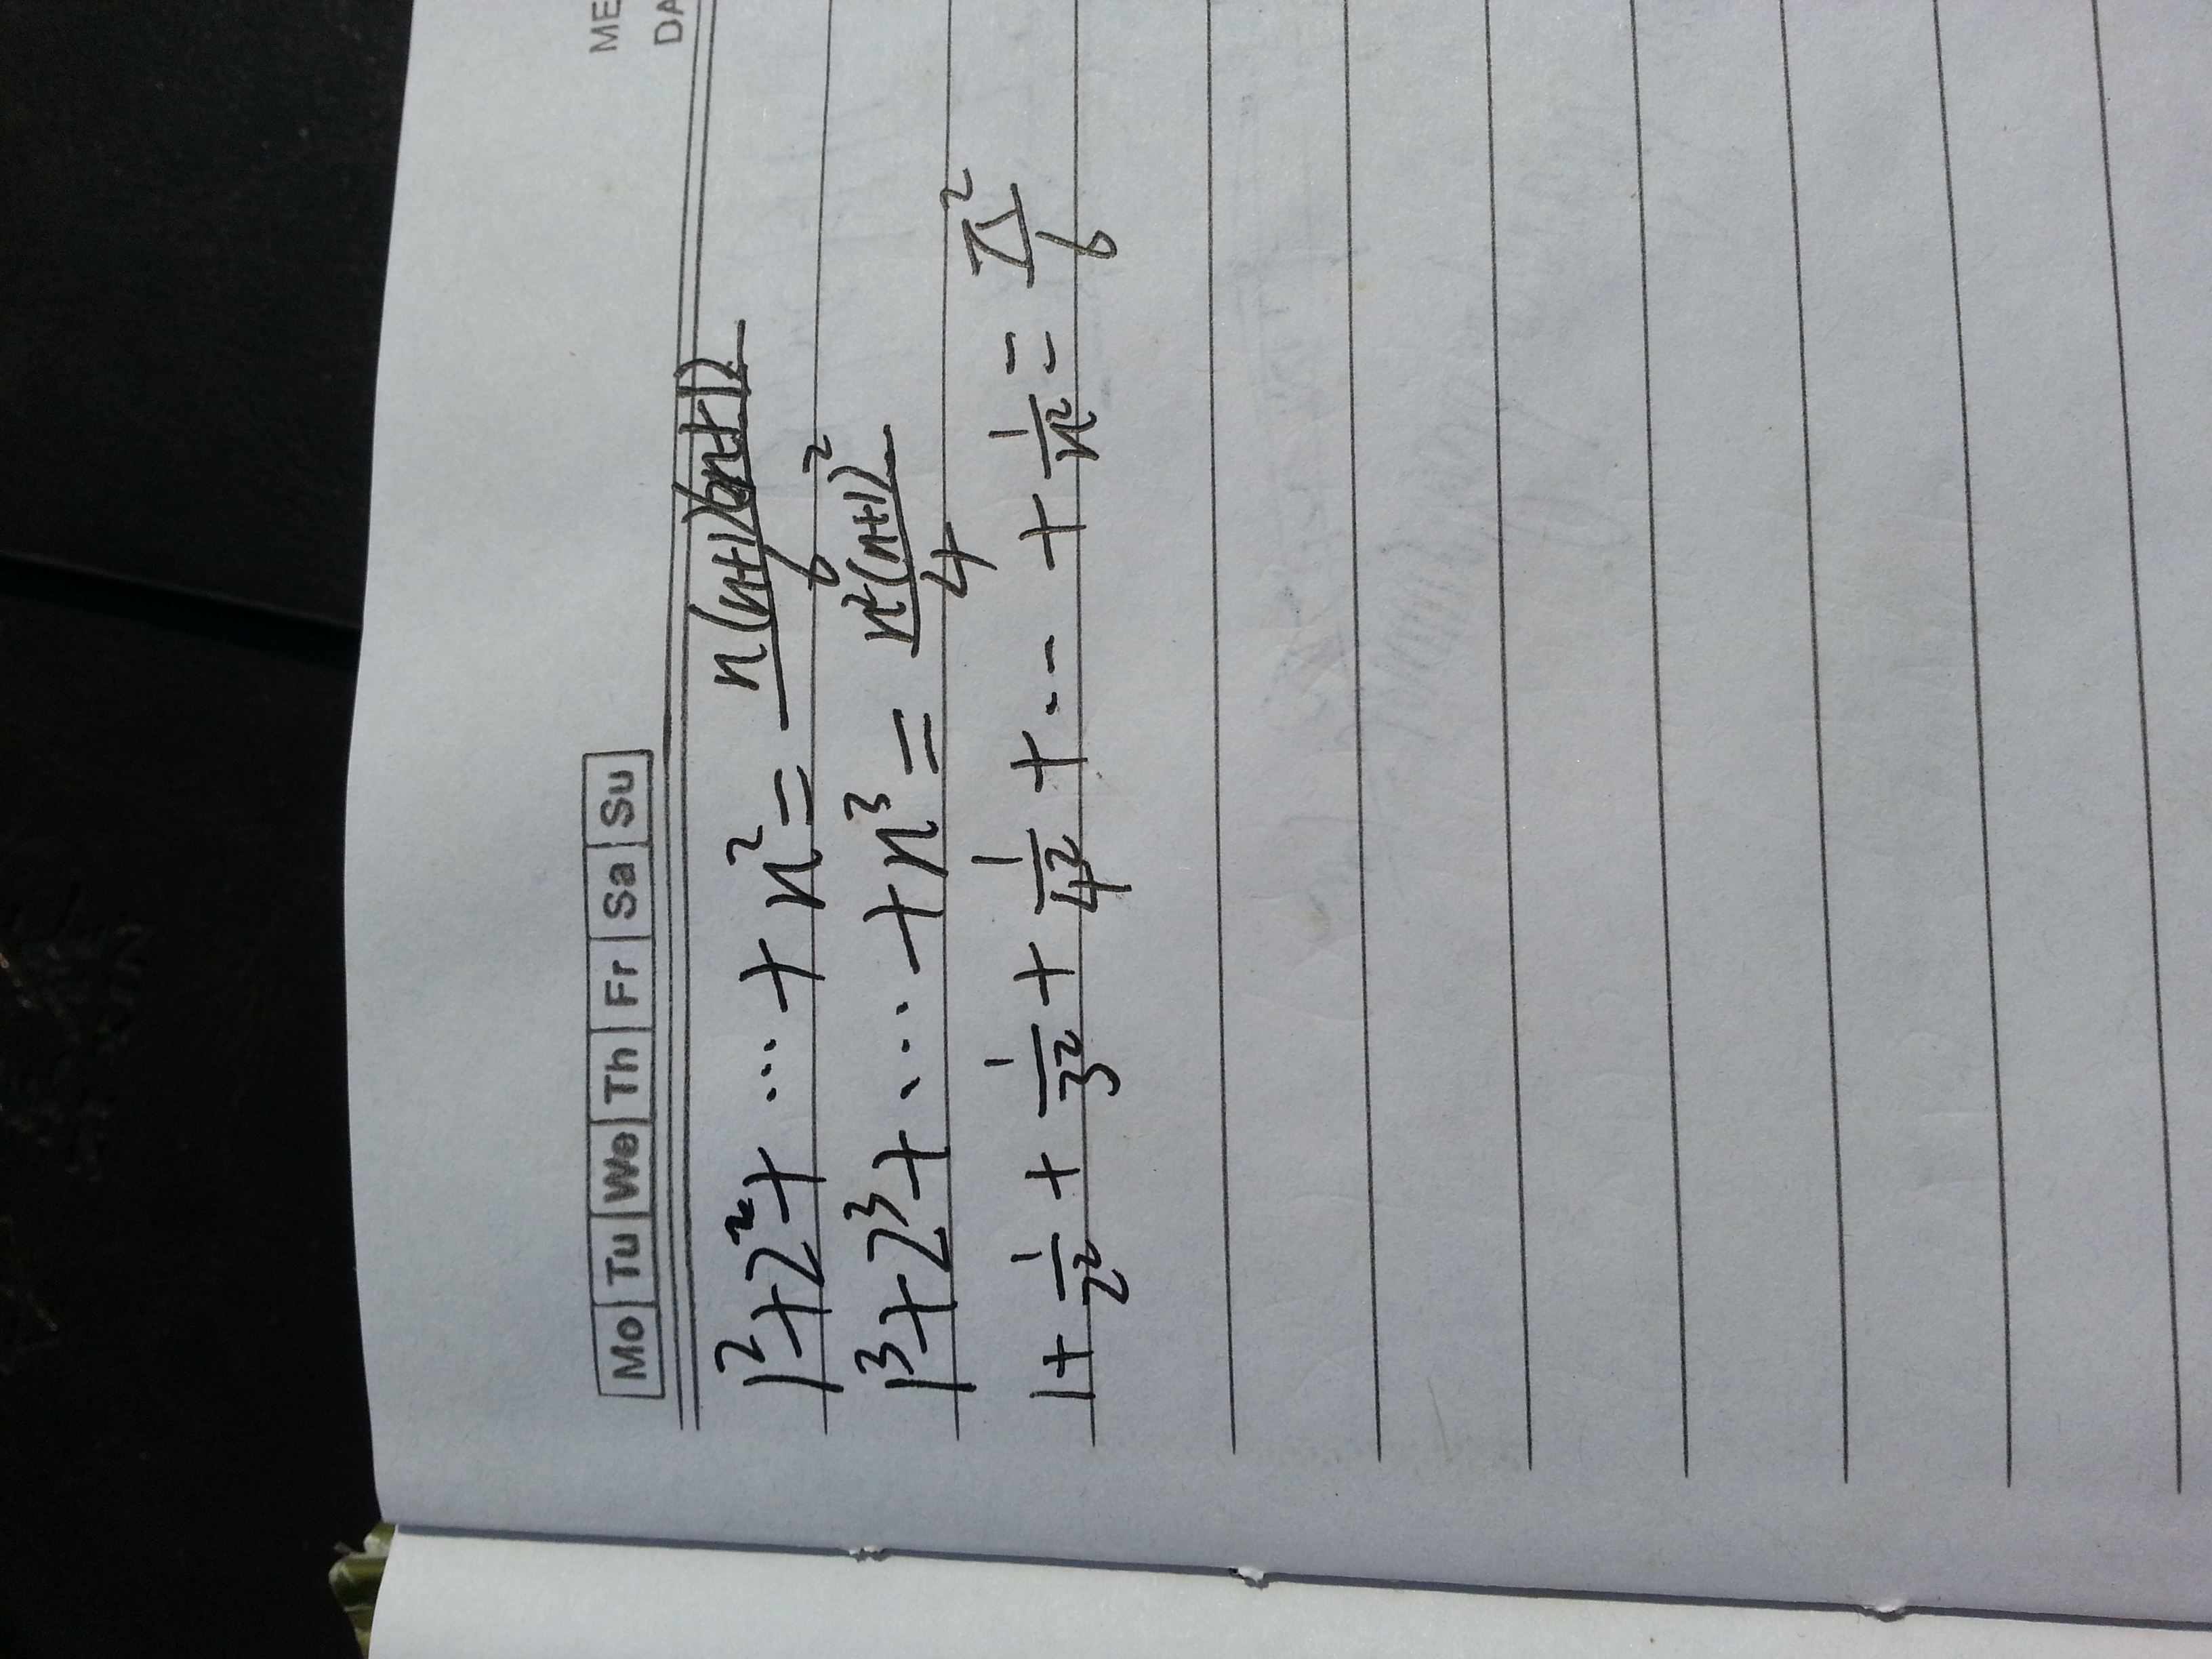 Mo Tu We Th Fr Sa Su
ME
DA
1²+2²+ ... + n² = n(n+1)(2n+1)/6
1³+2³+ ... +n³ = n²(n+1)²/4
1+ 1/2² + 1/3² + 1/4² + ... + 1/n² = π²/6